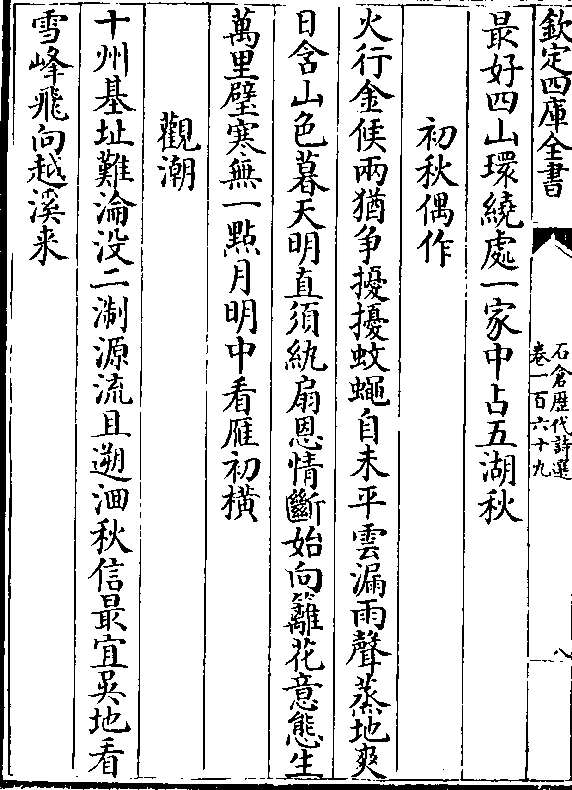 欽定四庫全書
石倉歷代詩選
卷一百六十九
八
最好四山環繞處一家中占五湖秋
初秋偶作
火行金候兩猶爭擾擾蚊蠅自未平雲漏雨聲蒸地爽
日含山色暮天明直須紈扇恩情斷始向籬花意態生
萬里碧寒無一點月明中看雁初橫
觀潮
十州基址難淪没二淛源流且遡洄秋信最宜吳地看
雪峰飛向越溪来